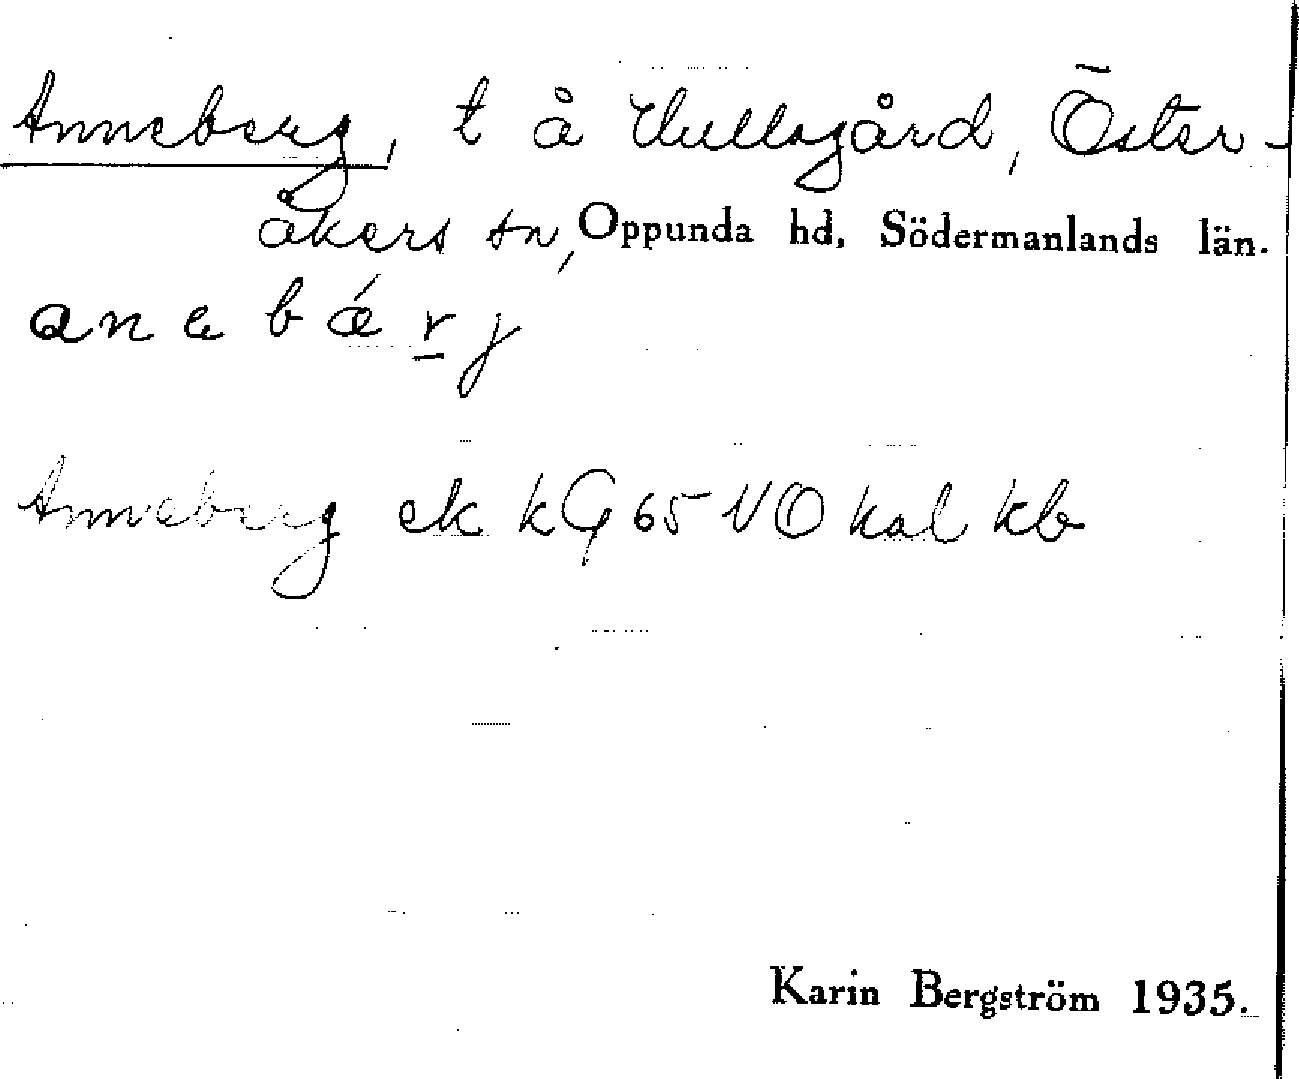 Anneberg, t å Hullsgård, Öster-
åkers sn, Oppunda hd, Södermanlands län.
anebǽrj
Anneberg ek kG 65 VO kal kb
Karin Bergström 1935.